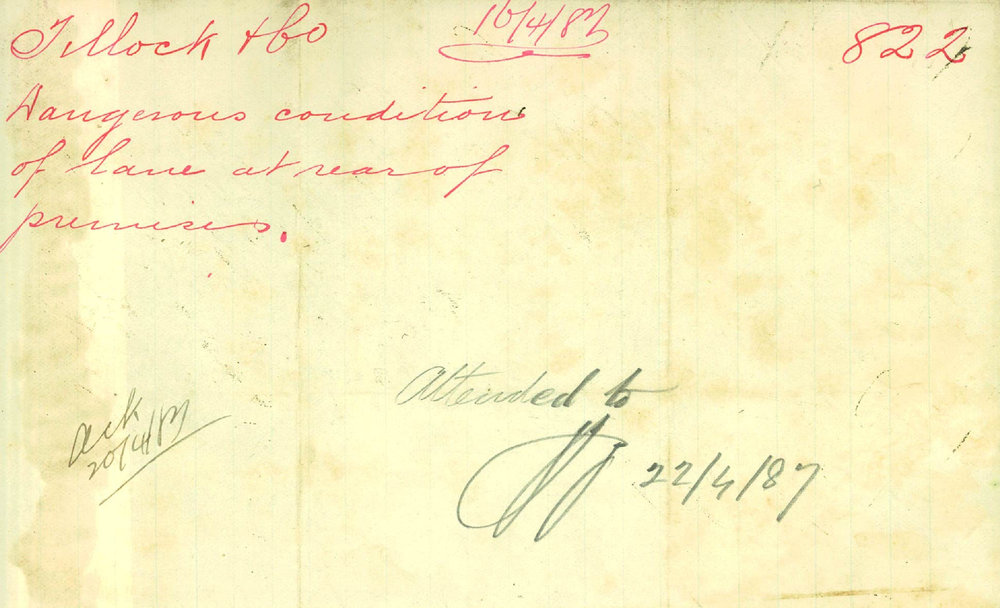 Tillock & Co 16/4/87 822
Dangerous condition
of lane at rear of
premises.
Attended to
22/4/87
Ack
20/4/87